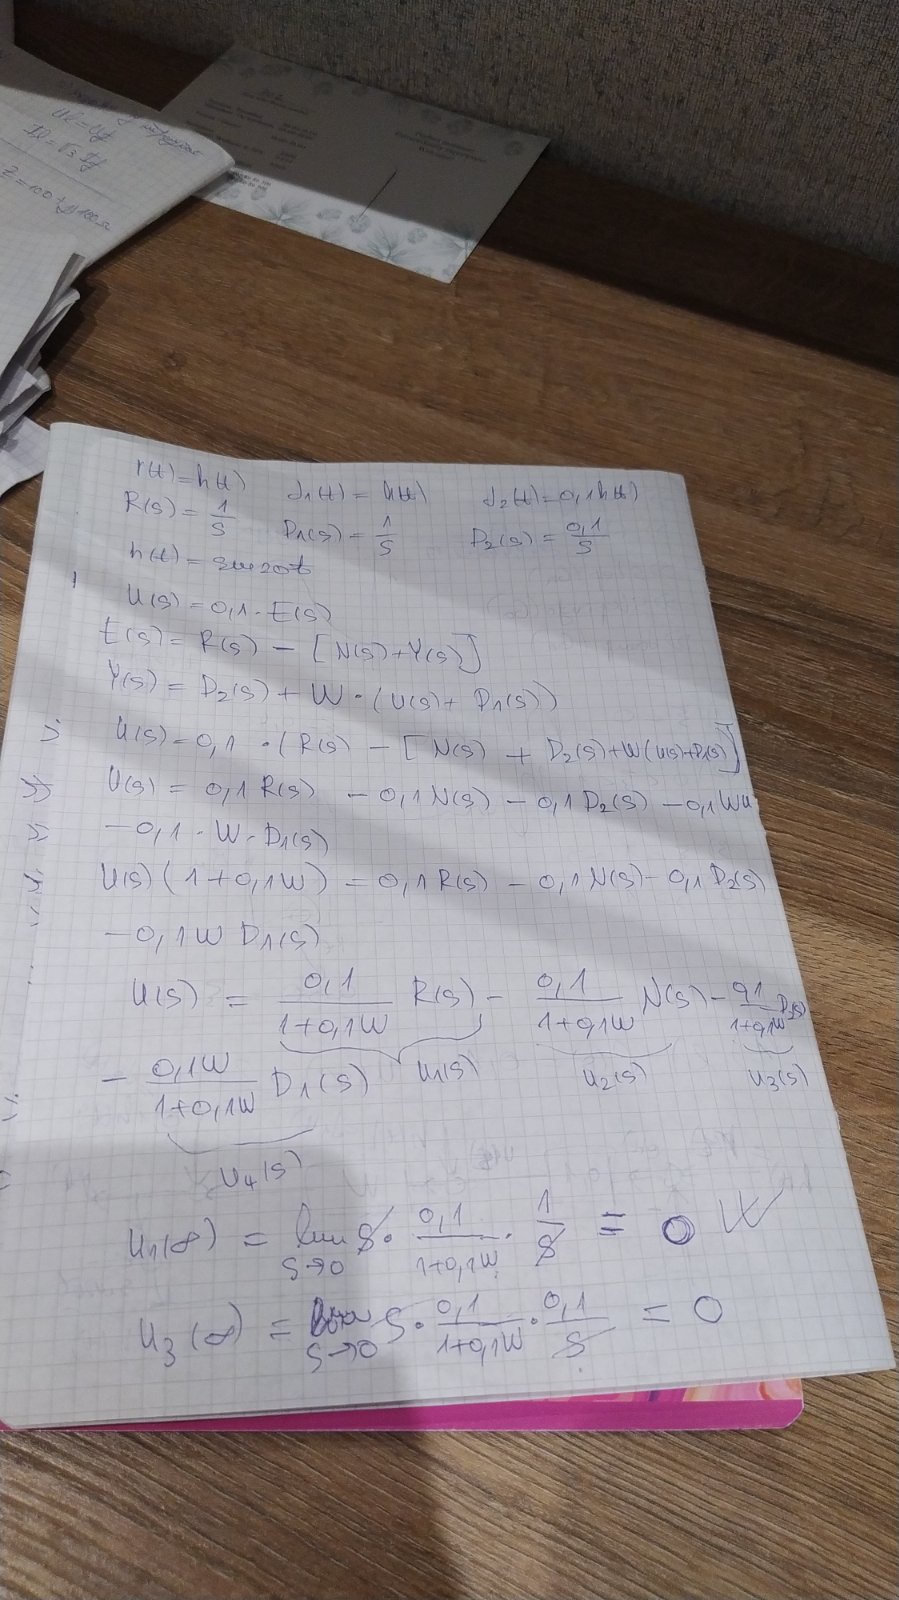 Ul=Uf
Il=√3 If
r(t)=h(t) d₁(t)=h(t) d₂(t)=0,1h(t)
R(s)=1/s D₁(s)=1/s D₂(s)=0,1/s
n(t)=sin20t
U(s)=0,1·E(s)
E(s)=R(s)-[N(s)+Y(s)]
Y(s)=D₂(s)+W·(U(s)+D₁(s))
U(s)=0,1·(R(s)-[N(s)+D₂(s)+W(U(s)+D₁(s)]
U(s)=0,1R(s)-0,1N(s)-0,1D₂(s)-0,1Wu
-0,1·W·D₁(s)
U(s)(1+0,1W)=0,1R(s)-0,1N(s)-0,1D₂(s)
-0,1W D₁(s)
U(s)=0,1/(1+0,1W) R(s)-0,1/(1+0,1W) N(s)-0,1/(1+0,1W) D₂(s)
-0,1W/(1+0,1W) D₁(s) u₁(s) u₂(s) u₃(s)
u₄(s)
u₁(∞)=lim s→0 s·0,1/(1+0,1W)·1/s=0 W
u₃(∞)=lim s→0 s·0,1/(1+0,1W)·0,1/s=0